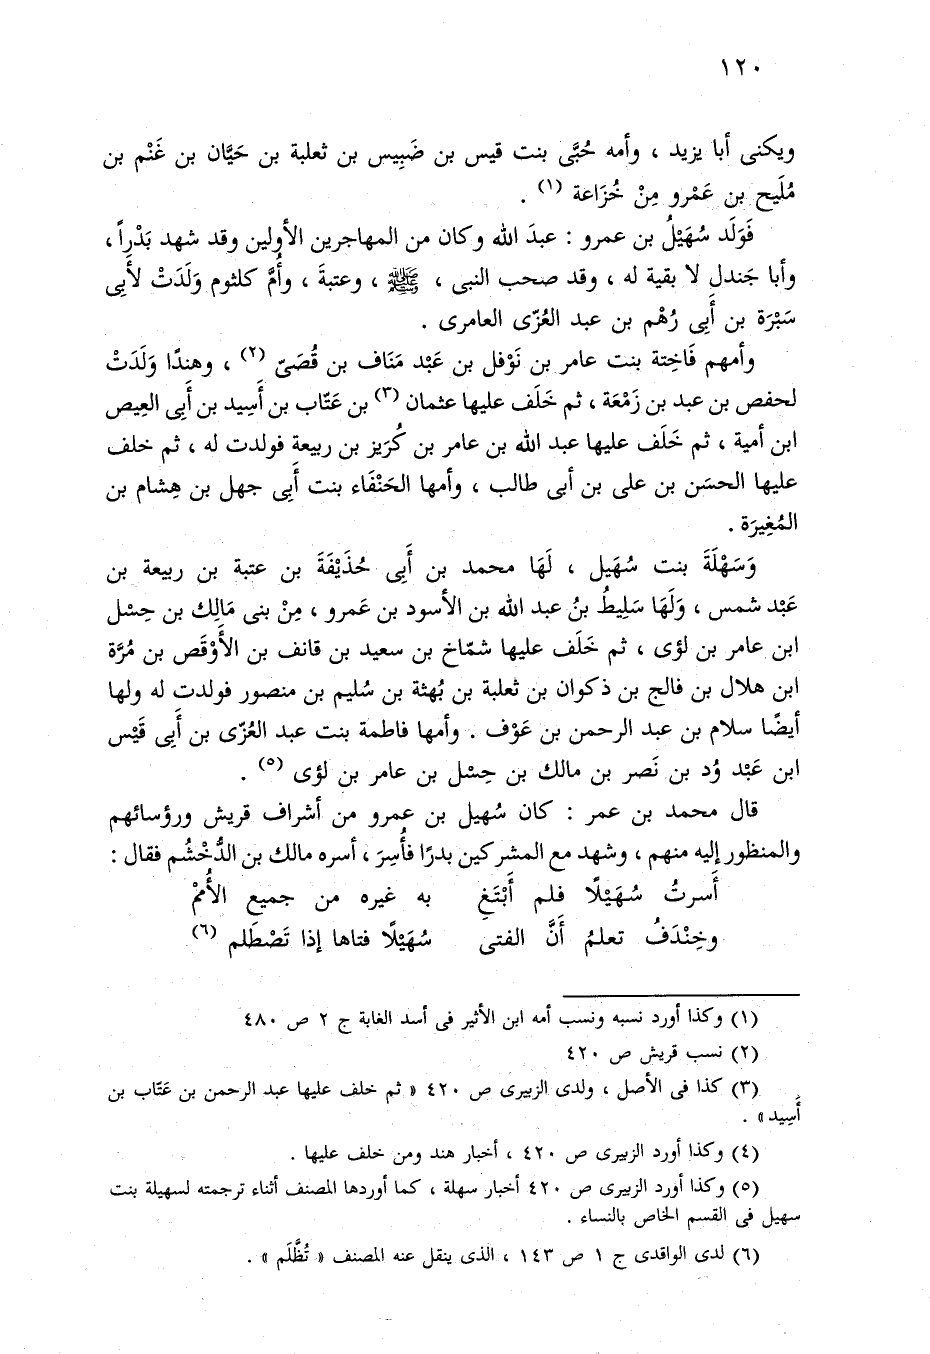 ١٢٠
ويكنى أبا يزيد ، وأمه حُبَّى بنت قيس بن ضَبِيس بن ثعلبة بن حَيَّان بن غَنْم بن
مُلَيح بن عَمْرو مِنْ خُزَاعة (١) .
فَوَلَد سُهَيْلُ بن عمرو : عبدَ الله وكان من المهاجرين الأولين وقد شهد بَدْراً ،
وأبا جَندل لا بقية له ، وقد صحب النبى ، ﷺ ، وعتبةَ ، وأُمَّ كلثوم وَلَدَتْ لأَبِى
سَبْرَة بن أَبِى رُهْم بن عبد العُزّى العامرى .
وأمهم فَاخِتة بنت عامر بن نَوْفل بن عَبْد مَنَاف بن قُصَىّ (٢) ، وهندًا وَلَدَتْ
لحفص بن عبد بن زَمْعَة ، ثم خَلَف عليها عثمان (٣) بن عَتّاب بن أَسِيد بن أَبِى العِيص
ابن أمية ، ثم خَلَف عليها عبد الله بن عامر بن كُرَيز بن ربيعة فولدت له ، ثم خلف
عليها الحسَن بن على بن أبى طالب ، وأمها الحَنْفَاء بنت أَبِى جهل بن هِشام بن
المُغِيرَة .
وَسَهْلَةَ بنت سُهَيل ، لَهَا محمد بن أَبِى حُذَيْفَةَ بن عتبة بن ربيعة بن
عَبْد شمس ، وَلَهَا سَلِيطُ بنُ عبد الله بن الأسود بن عَمرو ، مِنْ بنى مَالِك بن حِسْل
ابن عامر بن لؤى ، ثم خَلَف عليها شمّاخ بن سعيد بن قانف بن الأَوْقَص بن مُرَّة
ابن هلال بن فالج بن ذكوان بن ثعلبة بن بُهثة بن سُليم بن منصور فولدت له ولها
أيضًا سلام بن عبد الرحمن بن عَوْف . وأمها فاطمة بنت عبد العُزّى بن أَبِى قَيْس
ابن عَبْد وُد بن نَصر بن مالك بن حِسْل بن عامر بن لؤى (٥) .
قال محمد بن عمر : كان سُهيل بن عمرو من أشراف قريش ورؤسائهم
والمنظور إليه منهم ، وشهد مع المشركين بدرًا فأُسِرَ ، أسره مالك بن الدُّخْشُم فقال :
أَسرتُ سُهَيْلًا فلم أَبْتَغِ به غيره من جميع الأُممْ
وخِنْدَفُ تعلمُ أَنَّ الفتى سُهَيْلًا فتاها إذا تَصْطَلم (٦)
(١) وكذا أورد نسبه ونسب أمه ابن الأثير فى أسد الغابة ج ٢ ص ٤٨٠
(٢) نسب قريش ص ٤٢٠
(٣) كذا فى الأصل ، ولدى الزبيرى ص ٤٢٠ « ثم خلف عليها عبد الرحمن بن عَتّاب بن
أَسِيد » .
(٤) وكذا أورد الزبيرى ص ٤٢٠ ، أخبار هند ومن خلف عليها .
(٥) وكذا أورد الزبيرى ص ٤٢٠ أخبار سهلة ، كما أوردها المصنف أثناء ترجمته لسهيلة بنت
سهيل فى القسم الخاص بالنساء .
(٦) لدى الواقدى ج ١ ص ١٤٣ ، الذى ينقل عنه المصنف « تُظَّلَم » .